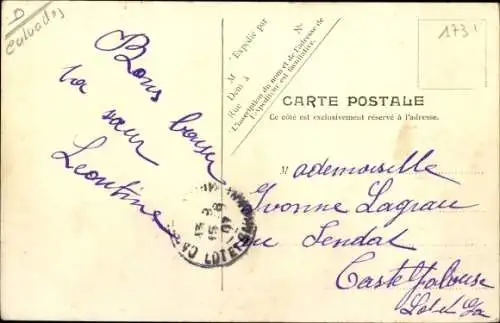 D
Calvados
Bons baiser
ta sœur
Leontine
Expédié par
M
Demt à
Rue
No
L'inscription du nom et de l'adresse de
l'Expéditeur est facultative.
1731
CARTE POSTALE
Ce côté est exclusivement réservé à l'adresse.
Mademoiselle
Yvonne Lagrau
rue Tendat
Casteljalouse
Lot et Ga
LOT ET